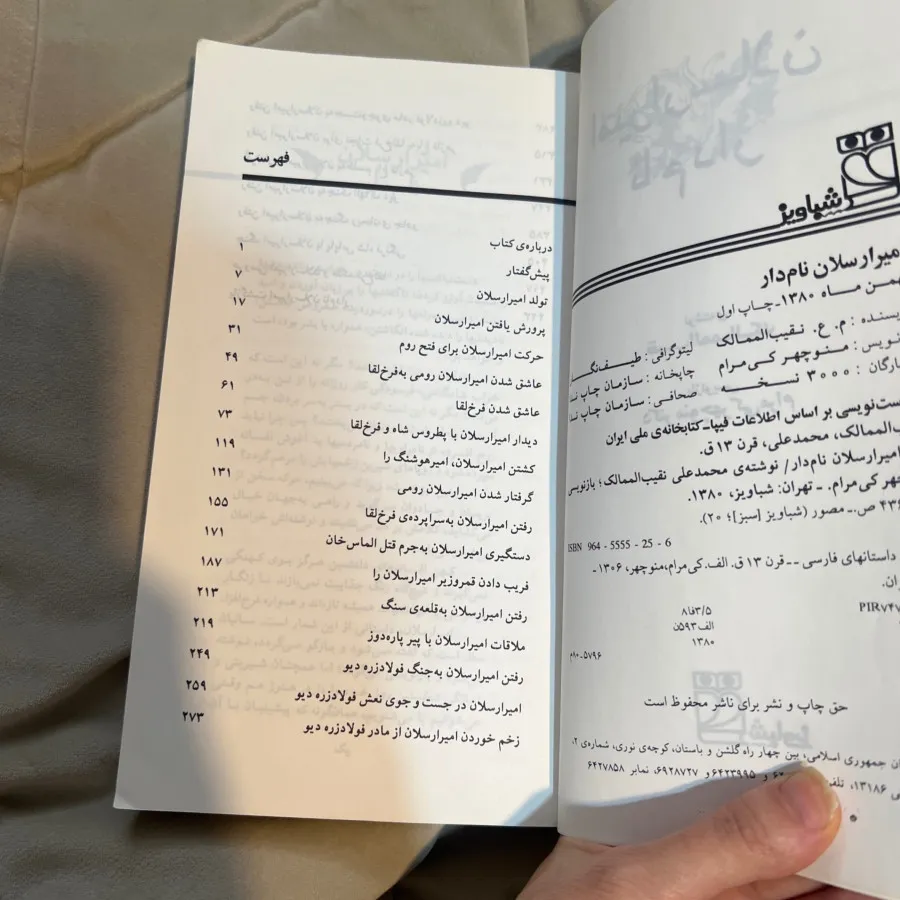 شباویز
امیرارسلان نام‌دار
بهمن ماه ۱۳۸۰ـ چاپ اول
م. ع. نقیب‌الممالک
منوچهر کی‌مرام
: ۳۰۰۰ نسخه
لیتوگرافی : طیف‌نگار
چاپخانه : سازمان چاپ
صحافی : سازمان چاپ
بر اساس اطلاعات فیپا-کتابخانه‌ی ملی ایران
محمدعلی، قرن ۱۳ ق.
امیرارسلان نام‌دار/ نوشته‌ی محمدعلی نقیب‌الممالک؛ بازنویسی
کی‌مرام. ـ تهران: شباویز، ۱۳۸۰.
۴۳۶ ص.ـ مصور (شباویز [سبز]؛ ۲۰).
ISBN 964 - 5555 - 25 - 6
داستانهای فارسی -- قرن ۱۳ ق. الف.کی‌مرام،منوچهر، ۱۳۰۶ ـ
۸فا۳/۵
الف۵۹۳ن
۱۳۸۰
۵۷۹۶-۸۰م
حق چاپ و نشر برای ناشر محفوظ است
جمهوری اسلامی، بین چهار راه گلشن و باستان، کوچه‌ی نوری، شماره‌ی ۲،
۱۳۱۸۶، ۶۴۲۳۹۹۵ و ۶۹۲۸۷۲۷، نمابر ۶۴۲۷۸۵۸
فهرست
درباره‌ی کتاب
پیش‌گفتار ۱
تولد امیرارسلان ۷
پرورش یافتن امیرارسلان ۱۷
حرکت امیرارسلان برای فتح روم ۳۱
عاشق شدن امیرارسلان رومی به‌فرخ‌لقا ۴۹
عاشق شدن فرخ‌لقا ۶۱
دیدار امیرارسلان با پطروس شاه و فرخ‌لقا ۷۳
کشتن امیرارسلان، امیرهوشنگ را ۱۱۹
گرفتار شدن امیرارسلان رومی ۱۳۱
رفتن امیرارسلان به‌سراپرده‌ی فرخ‌لقا ۱۵۵
دستگیری امیرارسلان به‌جرم قتل الماس‌خان ۱۷۱
فریب دادن قمروزیر امیرارسلان را ۱۸۷
رفتن امیرارسلان به‌قلعه‌ی سنگ ۲۱۳
ملاقات امیرارسلان با پیر پاره‌دوز ۲۱۹
رفتن امیرارسلان به‌جنگ فولادزره دیو ۲۴۹
امیرارسلان در جست و جوی نعش فولادزره دیو ۲۵۹
زخم خوردن امیرارسلان از مادر فولادزره دیو ۲۷۳